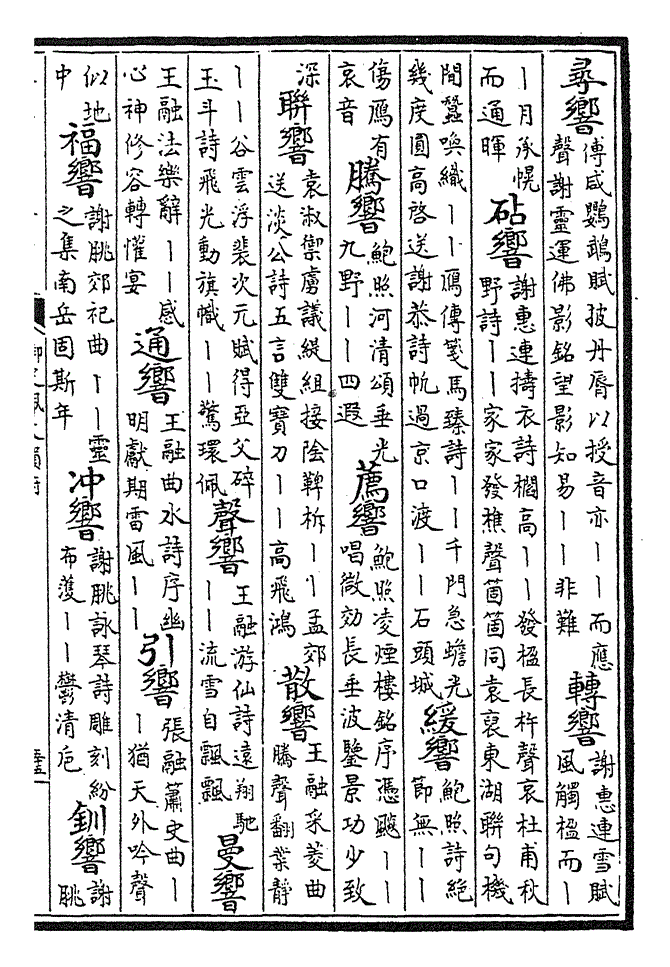 尋響傅咸鸚鵡賦披丹脣以授音亦丨丨而應
聲謝靈運佛影銘望影知易丨丨非難
轉響謝惠連雪賦
風觸楹而丨
丨月承幌
而通暉
砧響謝惠連擣衣詩櫩高丨丨發楹長杵聲哀杜甫秋
野詩丨丨家家發樵聲箇箇同袁裒東湖聯句機
閒蠶喚織丨丨鴈傳箋馬臻詩丨丨千門急蟾光
幾度圓高啓送謝恭詩帆過京口渡丨丨石頭城
緩響鮑照詩絕
節無丨丨
傷鴈有
哀音
騰響鮑照河清頌垂光
九野丨丨四遐
薦響鮑照凌煙樓銘序憑飈丨丨
唱微効長垂波鑒景功少致
深
聯響袁淑禦虜議緹組接陰鞞柝丨丨孟郊
送淡公詩五言雙寶刀丨丨高飛鴻
散響王融采菱曲
騰聲翻葉靜
丨丨谷雲浮裴次元賦得亞父碎
玉斗詩飛光動旗幟丨丨驚環佩
聲響王融游仙詩遠翔馳
丨丨流雪自飄飄
曼響
王融法樂辭丨丨感
心神修容轉惟宴
通響王融曲水詩序幽
明獻期雷風丨丨
引響張融簫史曲丨
丨猶天外吟聲
似地
中
福響謝朓郊祀曲丨丨靈
之集南岳固斯年
沖響謝朓詠琴詩雕刻紛
布濩丨丨鬱清卮
釧響謝
朓